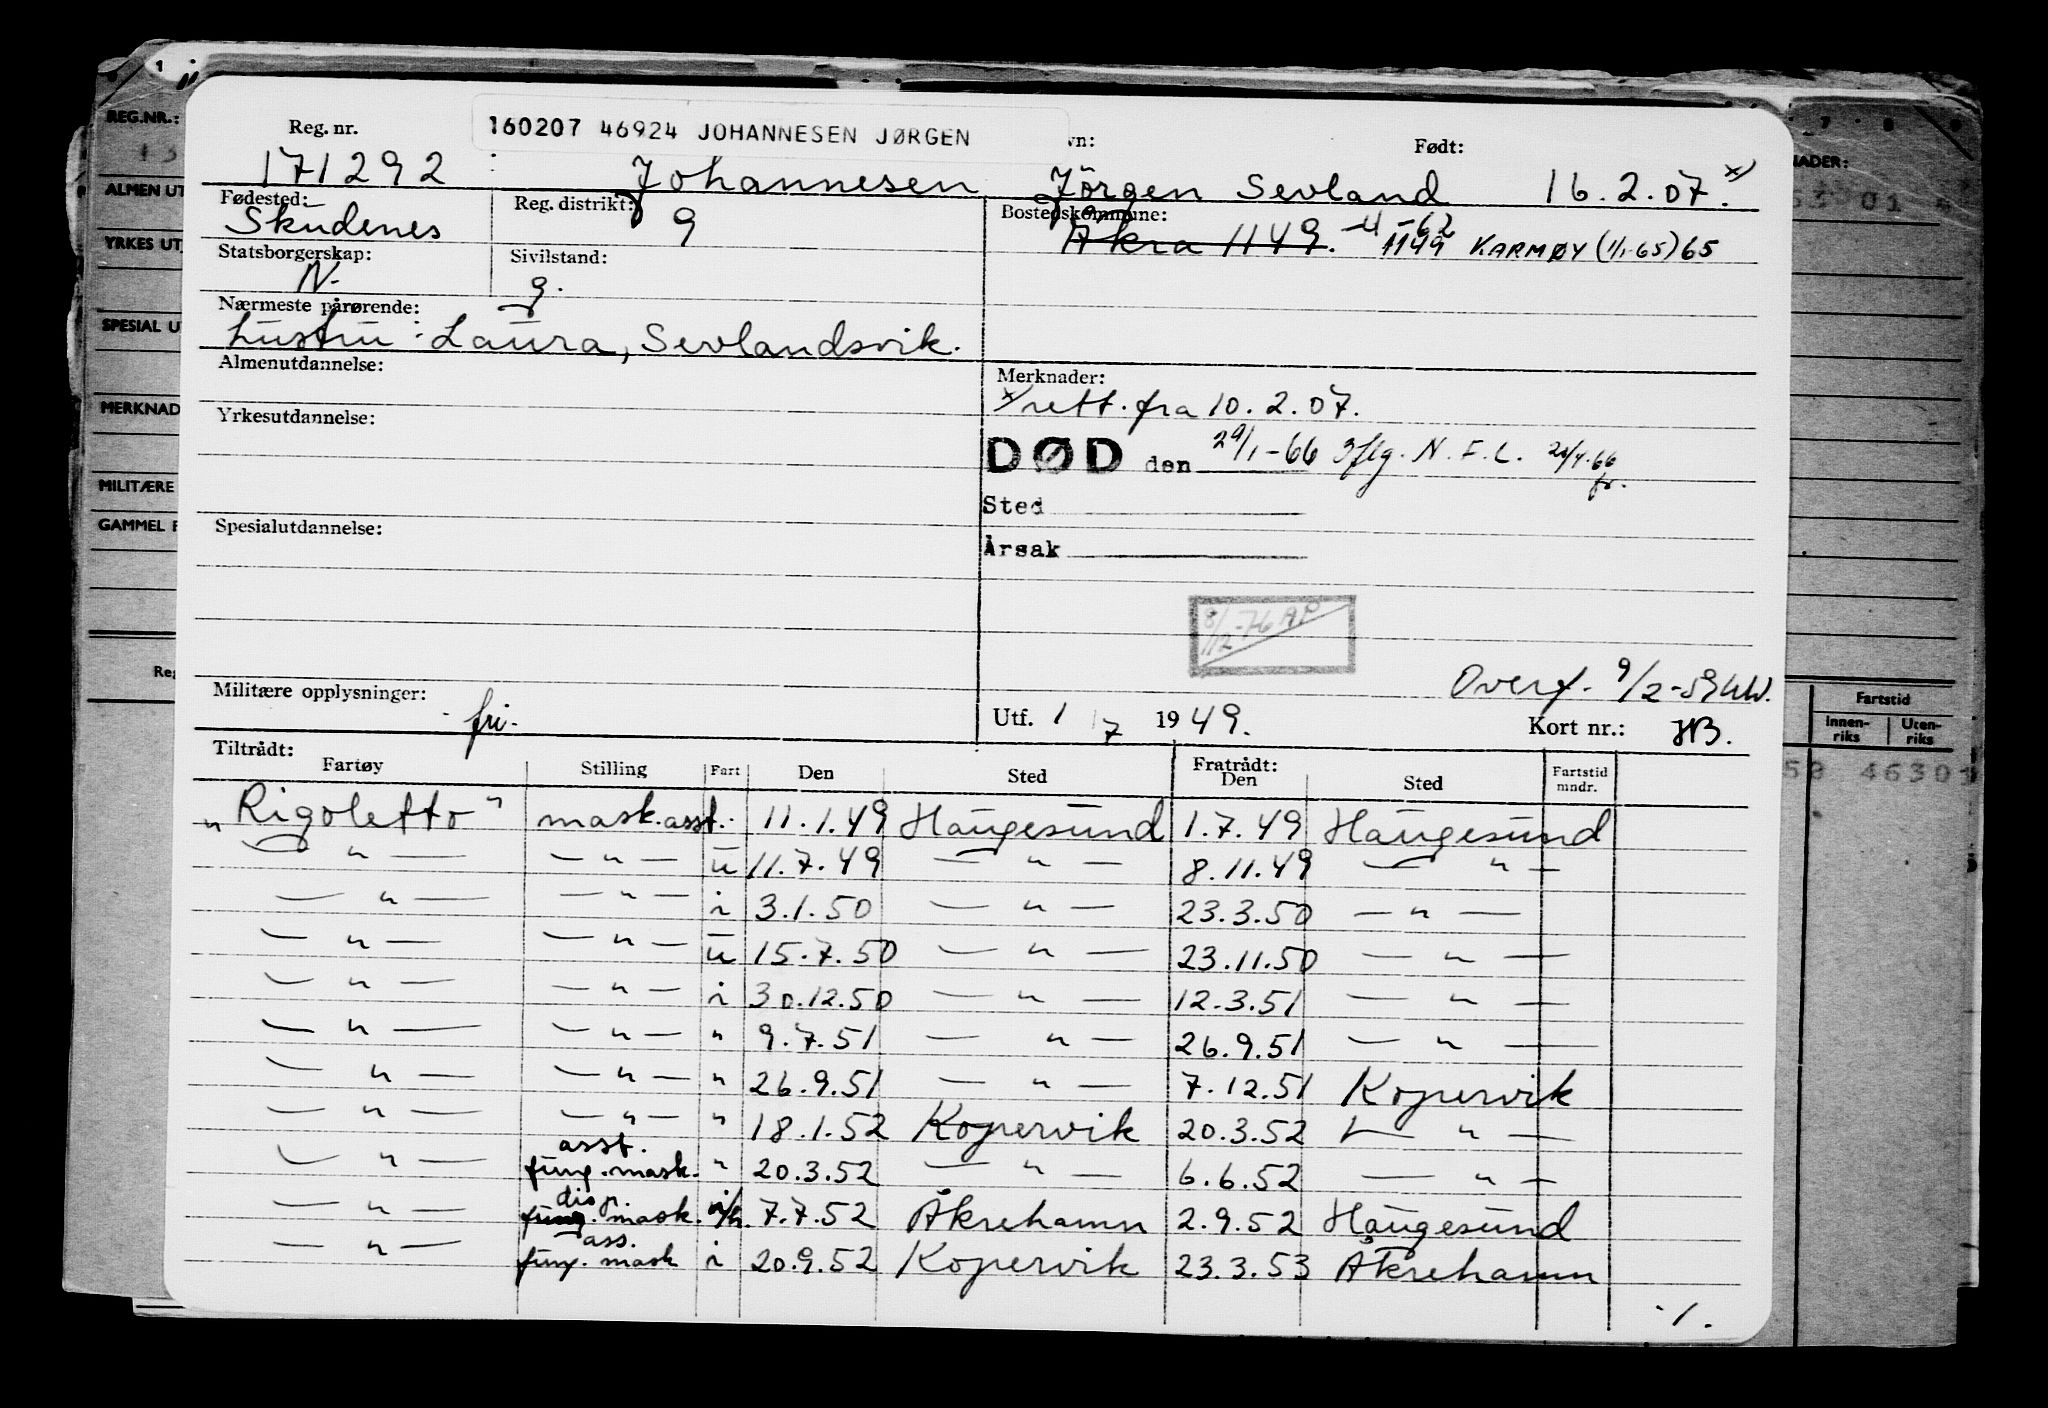 1
REG.NR.:
ALMEN UT
YRKES UT
SPESIAL U
MERKNAD
MILITÆRE
GAMMEL F
Reg
160207 46924 JOHANNESEN JØRGEN
Reg. nr. vn: Født:
171292 Johannesen Jörgen Sevland 16.2.07. x)
Fødested: Reg. distrikt: Bostedskommune:
Skudenes 9 Åkra 1149. -4-62 1149 KARMØY (1/1-65) 65
Statsborgerskap: Sivilstand:
N. g.
Nærmeste pårørende:
hustru: Laura, Sevlandsvik.
Almenutdannelse: Merknader:
x) rett. fra 10.2.07.
Yrkesutdannelse:
DØD den 29/1-66 Iflg. N.F.L. 26/4-66
fr.
Sted
Årsak
Spesialutdannelse:
8/12-76 AP
Overf. 9/2-59
Militære opplysninger: fri.
Utf. 1/7 1949. Kort nr.: HB.
Tiltrådt: Fratrådt:
Fartøy Stilling Fart Den Sted Den Sted Fartstid mndr.
"Rigoletto" mask.asst. 11.1.49 Haugesund 1.7.49 Haugesund
— " — — " — u 11.7.49 — " — 8.11.49 — " —
— " — — " — i 3.1.50 — " — 23.3.50 — " —
— " — — " — u 15.7.50 — " — 23.11.50 — " —
— " — — " — i 30.12.50 — " — 12.3.51 — " —
— " — — " — " 9.7.51 — " — 26.9.51 — " —
— " — — " — " 26.9.51 — " — 7.12.51 Kopervik
— " — — " — " 18.1.52 Kopervik 20.3.52 — " —
asst.
— " — fung. mask. " 20.3.52 — " — 6.6.52 — " —
disp.
— " — fung. mask. 7.7.52 Åkrehamn 2.9.52 Haugesund
ass.
— " — fung. mask i 20.9.52 Kopervik 23.3.53 Åkrehamn
./.
7 8 9
NADER:
Fartstid
Innen-riks Uten-riks
59 46301